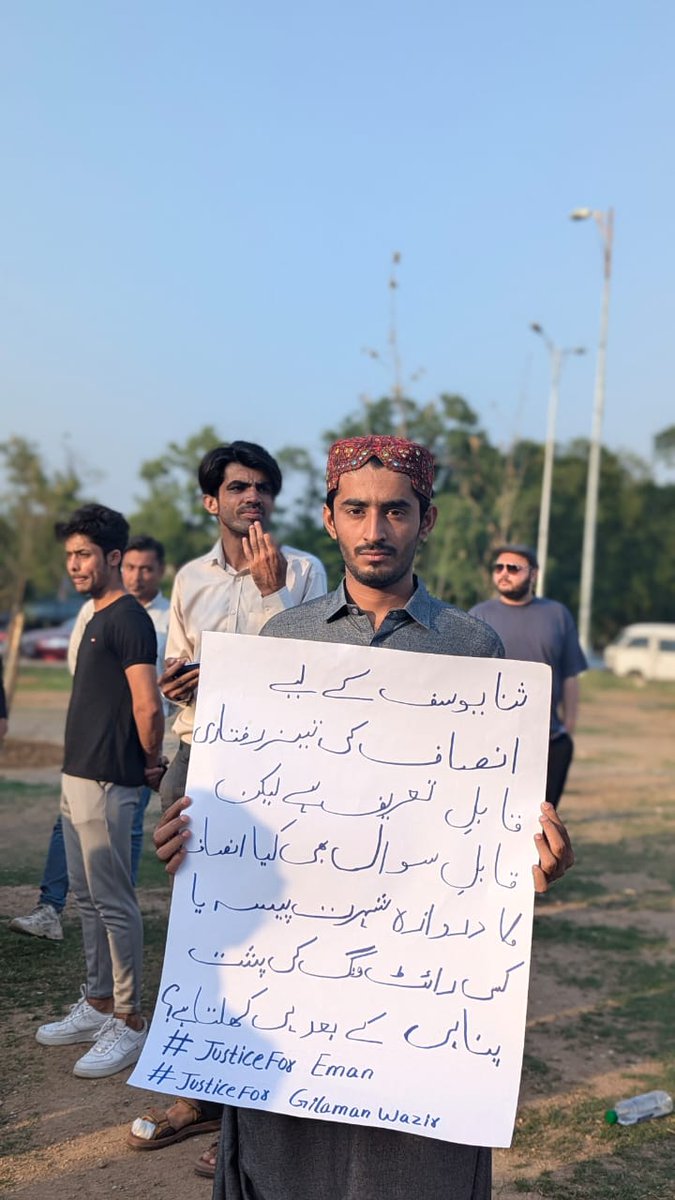 ثنا یوسف کے لیے
انصاف کی تیز رفتاری
قابلِ تعریف ہے لیکن
قابلِ سوال بھی کیا انصاف
کا دروازہ شہرت پیسہ یا
کس رائٹ ونگ کی پشت
پناہی کے بعد ہی کھلتا ہے؟
# JusticeFor Eman
# JusticeFor Gilaman Wazir